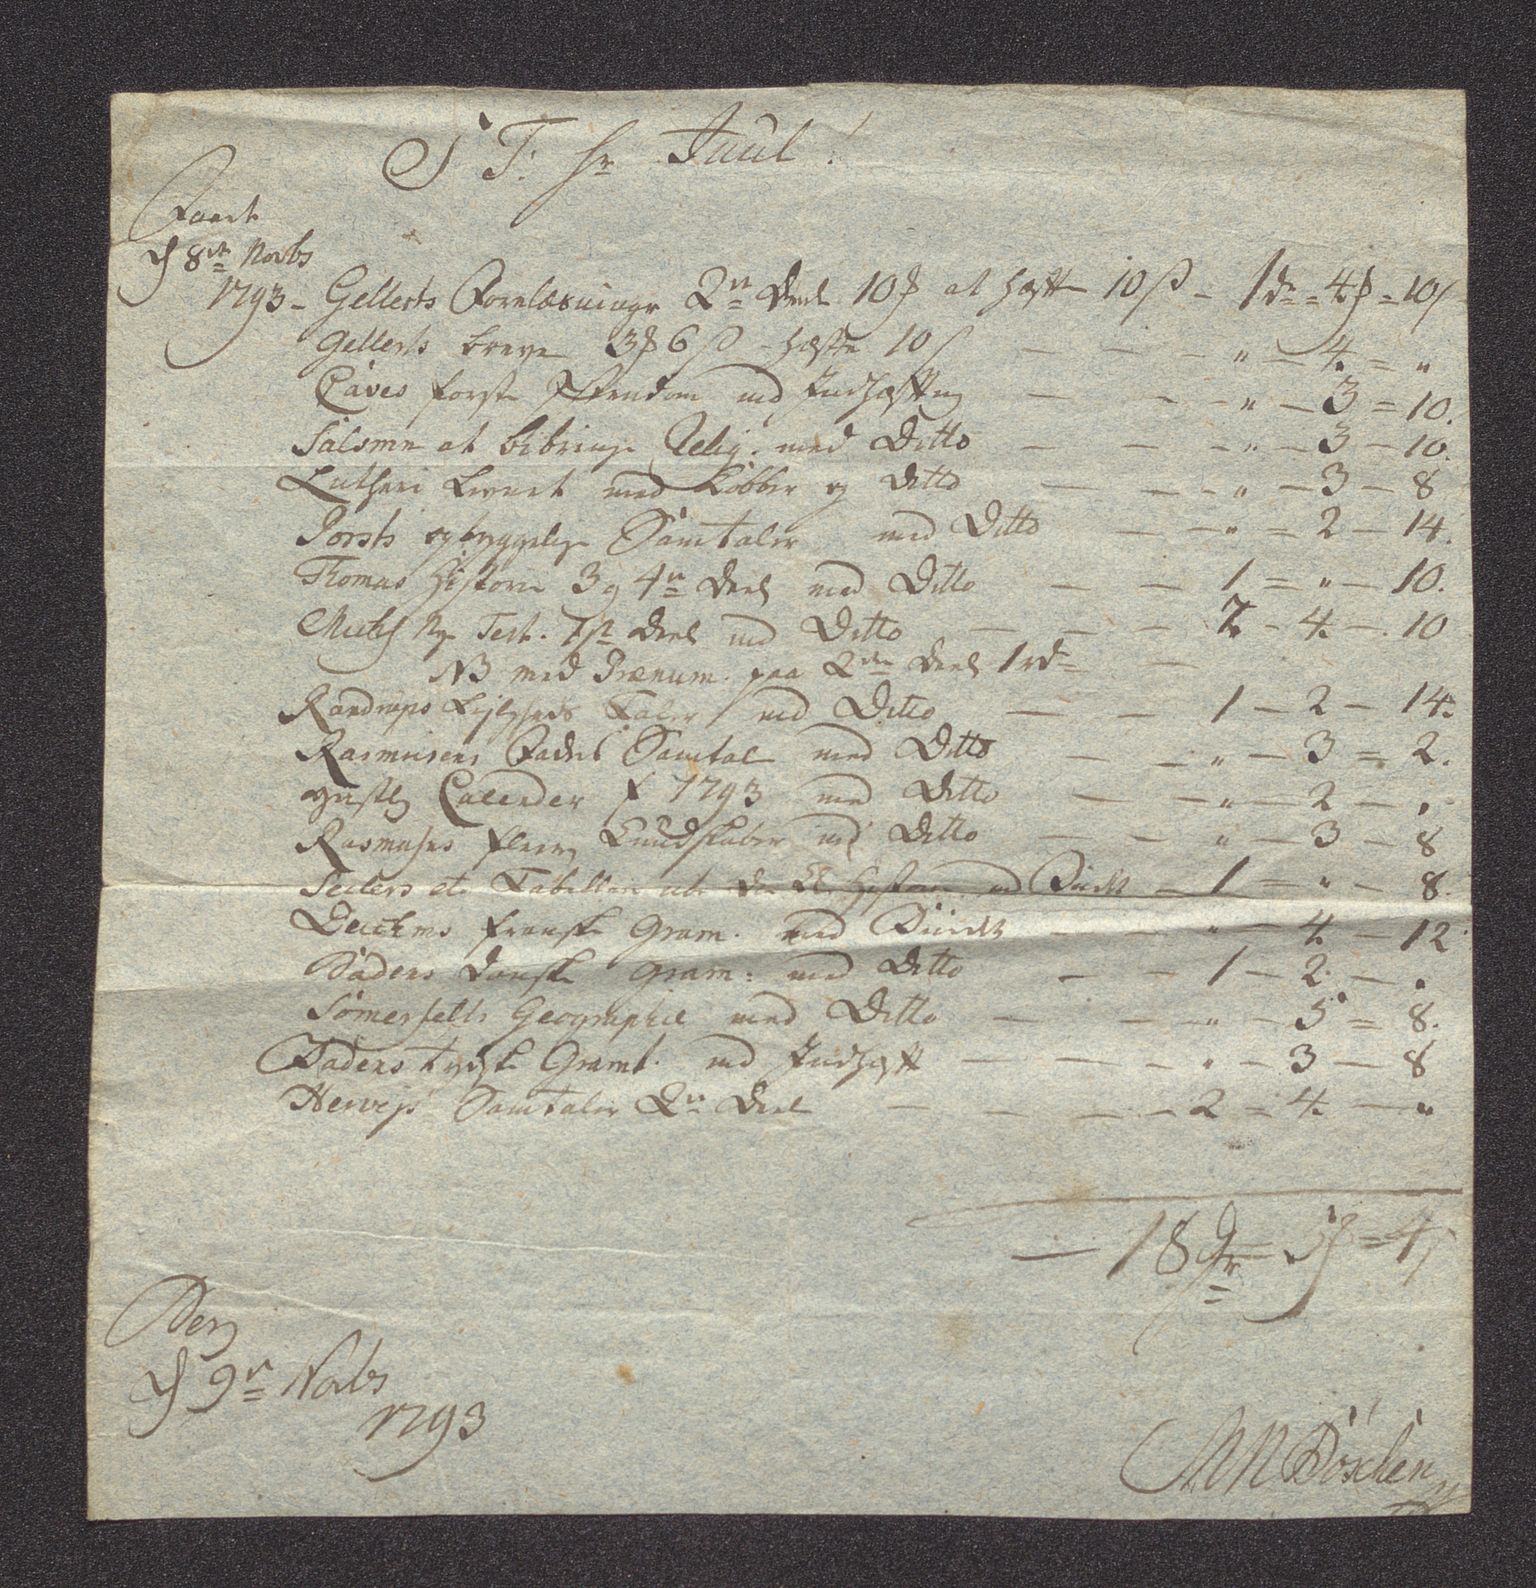 S T: Hr Juul!
d 8de Novbr
1793 - Gellerts Forelæsninger 2den Deel 10 at Hefte 10 ß - 1 rd - 4 - 10 ß
Gellerts Breve 3 6 ß - Hefte 10 ß - - - " - 4 = "
Caves første Christendom med Indheftning - - - " - 3 = 10.
Salsmn at bibringe Relig. med Ditto - - - " - 3 - 10.
Lutheri Levnet med Kobber og Ditto - - - " - 3 - 8
Porsts opbyggelige Samtaler med Ditto - - " = 2 - 14.
Thomas Historie 3 og 4de Deel med Ditto - - 1 = " - 10.
Ny Test. 1ste Deel med Ditto - - - 2 - 4 - 10
NB med Prænum. paa 2den Deel 1 rd -
Randrups Leiligheds Taler med Ditto - - 1 - 2 - 14.
Rasmusens Samtal med Ditto - - " - 3 = 2.
Calender f 1793 med Ditto - - " - 2 - "
Rasmusens Kundskaber med Ditto - - " - 3 - 8
Seilers Tabeller Historie med Bindt - 1 = " - 8.
Deichms franske Gram. med Bindt - - " - 4 - 12
Badens danske Gram: med Ditto - - 1 - 2 - "
Sømerfelts Geographie med Ditto - - " - 5 = 8.
Badens tydske Gramt. med Indheft - - " - 3 - 8
Herveys Samtaler 2den Deel - - - - 2 = 4 - "
- 18 rd = 5 = 4 ß
d 9de Novbr
1793